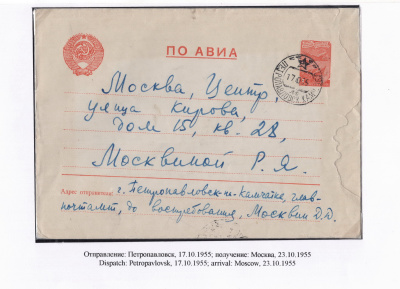 ПО АВИА
Москва, Центр,
улица Кирова,
дом 15, кв. 28,
Москвиной Р. Я.
Адрес отправителя: г. Петропавловск-н-Камчатке, глав-
почтамт, до востребования, Москвин Д.Д.
Отправление: Петропавловск, 17.10.1955; получение: Москва, 23.10.1955
Dispatch: Petropavlovsk, 17.10.1955; arrival: Moscow, 23.10.1955